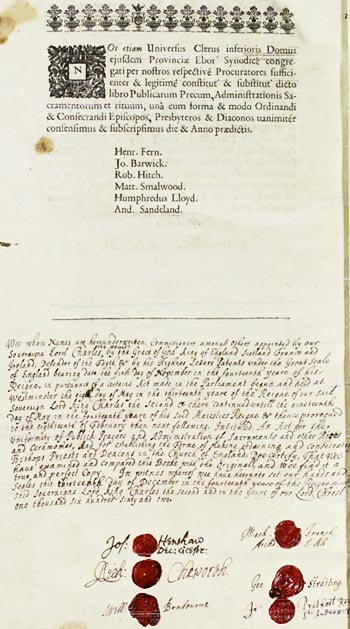 NOs etiam Universus Clerus inferioris Domus
ejusdem Provinciæ Ebor' Synodicè congre-
gati per nostros respectivè Procuratores suffici-
enter & legitimè constitut' & substitut' dicto
libro Publicarum Precum, Administrationis Sa-
cramentorum et rituum, unà cum forma & modo Ordinandi
& Consecrandi Episcopos, Presbyteros & Diaconos unanimiter
consensimus & subscripsimus die & Anno prædictis.
Henr. Fern.
Jo. Barwick.
Rob. Hitch.
Matt. Smalwood.
Humphredus Lloyd.
And. Sandeland.
Wee whose Names are hereunderwritten, Commissioners amongst others appointed by our
Soveraigne Lord Charles the second by the Grace of God King of England Scotland France and
Ireland, Defender of the Faith &c by his Highnes Letters Patents under the Great Seale
of England bearing date the first day of November in the fourteenth yeare of his
Reigne, in pursuance of a certaine Act made in the Parliament begun and held at
Westminster the eight day of May in the thirteenth yeare of the Reigne of our said
Sovereign Lord King Charles the Second & there continued untill the nineteenth
day of May in the fourteenth yeare of his said Majesties Reigne & thence prorogued
to the eighteenth of February then next following. Intituled An Act for the
Uniformity of Publick Prayers and Administration of Sacraments and other Rites
and Ceremonies And for establishing the Forme of Making Ordaining and Consecrating
Bishops Priests and Deacons in the Church of England, Doe certifie That wee
have examined and compared this Booke with the Originall, and wee find it a
true and perfect Copy. In witnes whereof wee have hereunto set our Hands and
Seales this thirteenth day of December in the fourteenth yeare of the Reigne of our
said Soveraigne Lord King Charles the second and in the yeare of our Lord Christ
one thousand six hundred sixty and two.
Jos: Henshaw
Dec: Cicestr:
Mark: Franck
Archi: S. Alb.
Rich: Chaworth
Geo: Stradling
Will: Brabourne
Jo: Pritchett